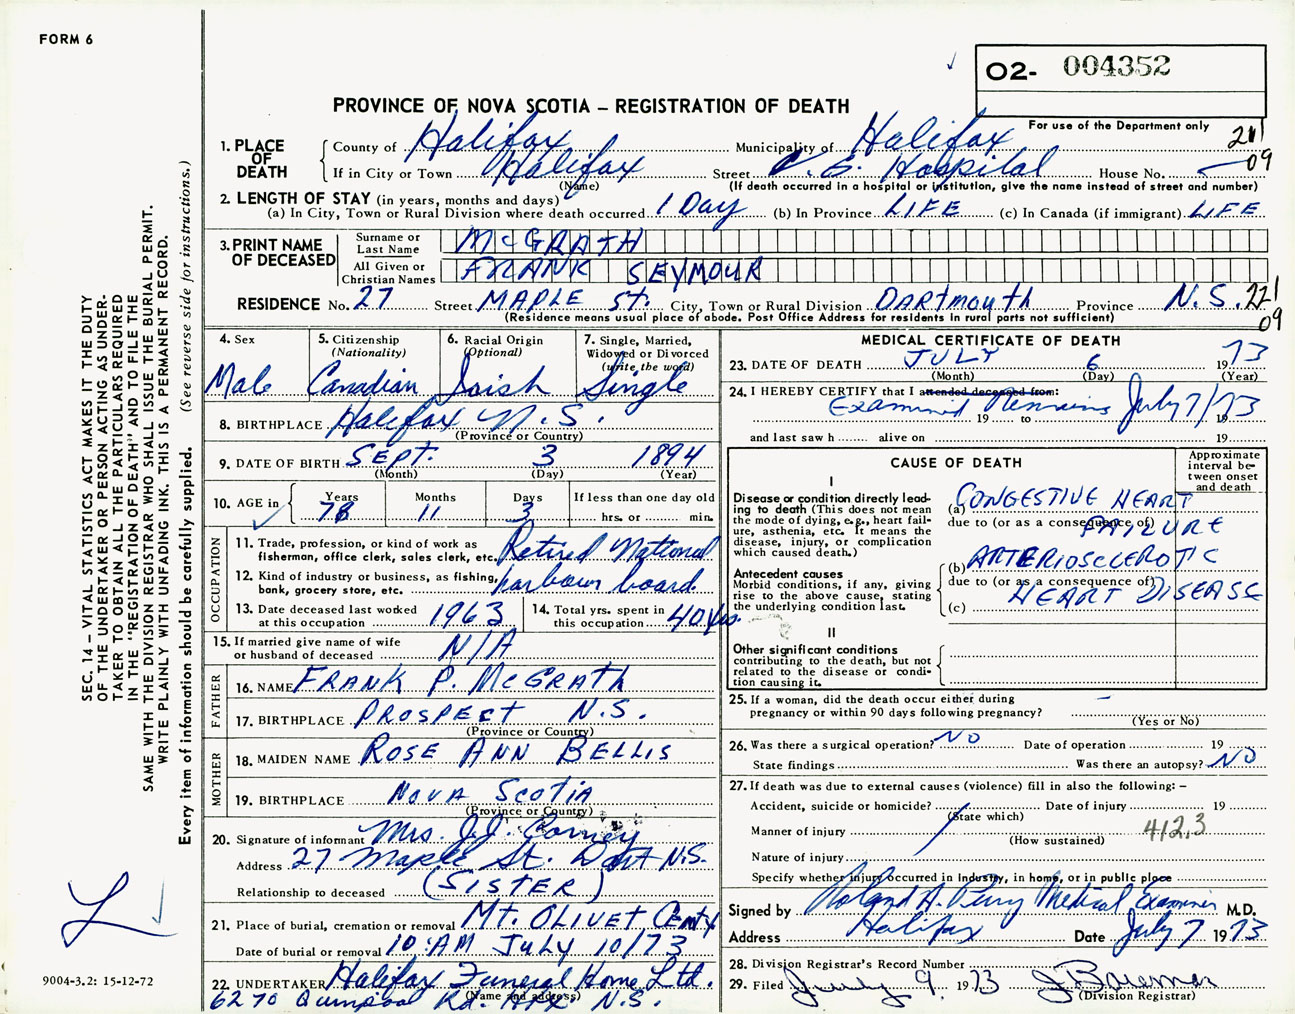 FORM 6
02- 004352
PROVINCE OF NOVA SCOTIA – REGISTRATION OF DEATH
For use of the Department only
211
09
1. PLACE OF DEATH
County of Halifax Municipality of Halifax
If in City or Town Halifax Street V. G. Hospital House No.
(Name) (If death occurred in a hospital or institution, give the name instead of street and number)
2. LENGTH OF STAY (in years, months and days)
(a) In City, Town or Rural Division where death occurred 1 Day (b) In Province LIFE (c) In Canada (if immigrant) LIFE
3. PRINT NAME OF DECEASED
Surname or Last Name McGRATH
All Given or Christian Names FRANK SEYMOUR
RESIDENCE No. 27 Street MAPLE St. City, Town or Rural Division DARTMOUTH Province N.S. 221
(Residence means usual place of abode. Post Office Address for residents in rural parts not sufficient) 09
4. Sex
Male
5. Citizenship (Nationality)
Canadian
6. Racial Origin (Optional)
Irish
7. Single, Married, Widowed or Divorced (write the word)
Single
8. BIRTHPLACE Halifax N.S.
(Province or Country)
9. DATE OF BIRTH SEPT. 3 1894
(Month) (Day) (Year)
10. AGE in Years Months Days If less than one day old
78 11 3 hrs. or min.
OCCUPATION
11. Trade, profession, or kind of work as fisherman, office clerk, sales clerk, etc. Retired National
12. Kind of industry or business, as fishing, bank, grocery store, etc. harbour board.
13. Date deceased last worked at this occupation 1963
14. Total yrs. spent in this occupation 40 yrs.
15. If married give name of wife or husband of deceased N/A
FATHER
16. NAME FRANK P. McGRATH
17. BIRTHPLACE PROSPECT N.S.
(Province or Country)
MOTHER
18. MAIDEN NAME ROSE ANN BELLIS
19. BIRTHPLACE NOVA SCOTIA
(Province or Country)
20. Signature of informant Mrs. J.J.
Address 27 Maple St. Dart N.S.
Relationship to deceased (SISTER)
21. Place of burial, cremation or removal Mt. OLIVET Cemty
Date of burial or removal 10:AM JULY 10/73
22. UNDERTAKER Halifax Funeral Home Ltd.
(Name and address)
6270 Quinpool Rd. HFX N.S.
MEDICAL CERTIFICATE OF DEATH
23. DATE OF DEATH JULY 6 1973
(Month) (Day) (Year)
24. I HEREBY CERTIFY that I attended deceased from:
Examined Remains July 7/73
19 to 19
and last saw h alive on 19
CAUSE OF DEATH
Approximate interval between onset and death
I
Disease or condition directly leading to death (This does not mean the mode of dying, e.g., heart failure, asthenia, etc. It means the disease, injury, or complication which caused death.)
(a) CONGESTIVE HEART
due to (or as a consequence of) FAILURE
Antecedent causes
Morbid conditions, if any, giving rise to the above cause, stating the underlying condition last.
(b) ARTERIOSCLEROTIC
due to (or as a consequence of)
(c) HEART DISEASE
II
Other significant conditions
contributing to the death, but not related to the disease or condition causing it.
25. If a woman, did the death occur either during pregnancy or within 90 days following pregnancy? –
(Yes or No)
26. Was there a surgical operation? NO Date of operation 19
State findings Was there an autopsy? NO
27. If death was due to external causes (violence) fill in also the following: –
Accident, suicide or homicide? Date of injury 19
(State which)
Manner of injury 412.3
(How sustained)
Nature of injury
Specify whether injury occurred in industry, in home, or in public place
Signed by Roland A. Perry Medical Examiner M.D.
Address Halifax Date July 7 1973
28. Division Registrar's Record Number
29. Filed July 9 1973
(Division Registrar)
SEC. 14 – VITAL STATISTICS ACT MAKES IT THE DUTY
OF THE UNDERTAKER OR PERSON ACTING AS UNDER-
TAKER TO OBTAIN ALL THE PARTICULARS REQUIRED
IN THE "REGISTRATION OF DEATH" AND TO FILE THE
SAME WITH THE DIVISION REGISTRAR WHO SHALL ISSUE THE BURIAL PERMIT.
WRITE PLAINLY WITH UNFADING INK. THIS IS A PERMANENT RECORD.
Every item of information should be carefully supplied. (See reverse side for instructions.)
9004-3.2: 15-12-72